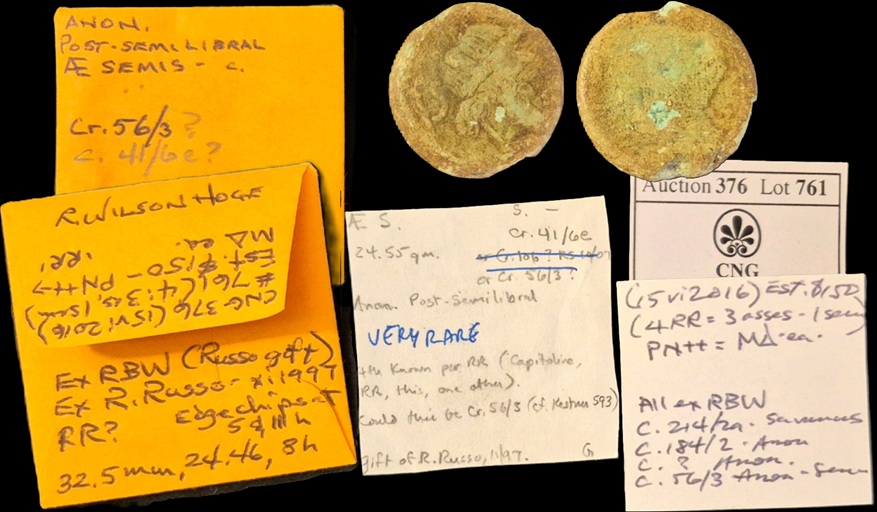 ANON.
POST-SEMILIBRAL
Æ SEMIS - c.
Cr. 56/3?
c. 41/6e?
R. WILSON HOGE
CNG 376 (15vi2016)
#761 (4: 3as, 1sem)
EST. $150 - PN++>
MΔ ea. 'RR'.
Ex RBW (Russo gift)
Ex R. Russo - xi.1997
Edgechips at
RR? 5&11h
32.5mm, 24.46, 8h
Æ S. S. —
Cr. 41/6e
24.55gm.
or Cr. 56/3?
Anon. Post-Semilibral
VERY RARE
4th known per RR (Capitoline,
RR, this, one other).
Could this be Cr. 56/3 (cf. Kestner 593)
gift of R. Russo, 11/97. G
Auction 376 Lot 761
CNG
(15vi2016) EST. $150
(4RR = 3 asses - 1 sem
PN++ = MΔ-ea.
All ex RBW
C. 214/2a - Saranus
C. 184/2 - Anon
C. ? Anon.
C. 56/3 Anon - Sem